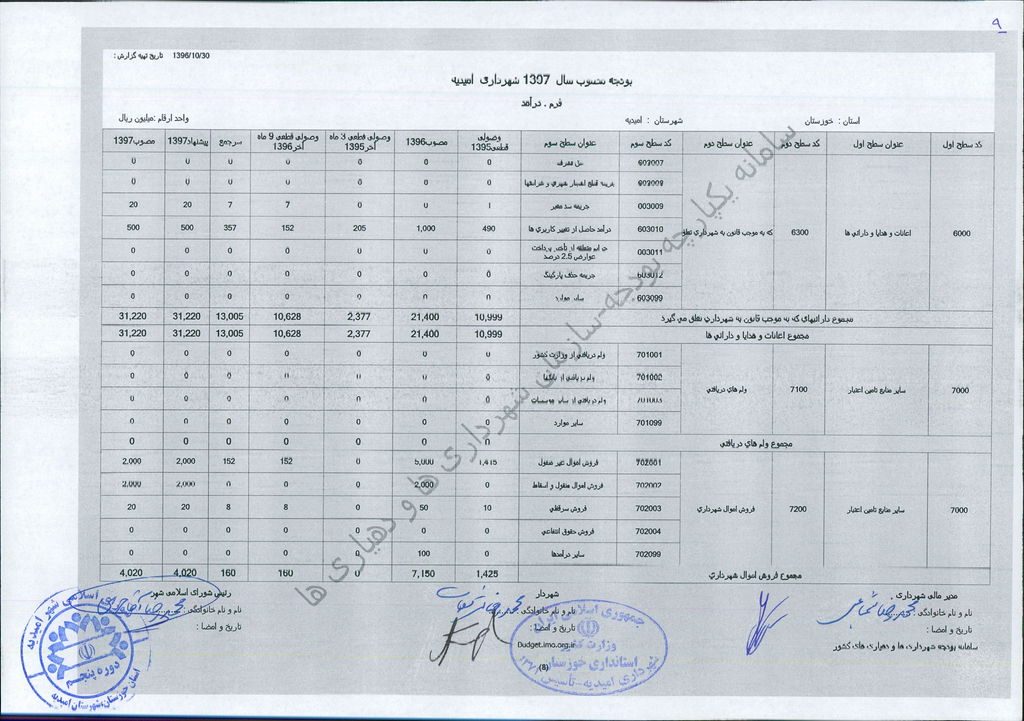 ۹
تاریخ تهیه گزارش : 1396/10/30
بودجه مصوب سال 1397 شهرداری امیدیه
فرم . درآمد
استان : خوزستان شهرستان : امیدیه واحد ارقام :میلیون ریال
کد سطح اول عنوان سطح اول کد سطح دوم عنوان سطح دوم کد سطح سوم عنوان سطح سوم وصولی قطعی1395 مصوب1396 وصولی قطعی 3 ماه آخر1395 وصولی قطعی 9 ماه آخر1396 سرجمع پیشنهاد1397 مصوب1397
6000 اعانات و هدایا و دارائی ها 6300 که به موجب قانون به شهرداری تعلق
603007 0 0 0 0 0 0 0
603008 جریمه قطع اشجار شهری و خسارتها 0 0 0 0 0 0 0
603009 جریمه سد معبر 1 0 0 7 7 20 20
603010 درآمد حاصل از تغییر کاربری ها 490 1,000 205 152 357 500 500
603011 جرایم متعلقه از تأخیر پرداخت عوارض 2.5 درصد 0 0 0 0 0 0 0
603012 جریمه حذف پارکینگ 0 0 0 0 0 0 0
603099 سایر موارد 0 0 0 0 0 0 0
مجموع دارائیهای که به موجب قانون به شهرداری تعلق می گیرد 10,999 21,400 2,377 10,628 13,005 31,220 31,220
مجموع اعانات و هدایا و دارائی ها 10,999 21,400 2,377 10,628 13,005 31,220 31,220
7000 سایر منابع تامین اعتبار 7100 وام های دریافتی
701001 وام دریافتی از وزارت کشور 0 0 0 0 0 0 0
701002 وام دریافتی از بانکها 0 0 0 0 0 0 0
701003 وام دریافتی از سایر موسسات 0 0 0 0 0 0 0
701099 سایر موارد 0 0 0 0 0 0 0
مجموع وام های دریافتی 0 0 0 0 0 0 0
7000 سایر منابع تامین اعتبار 7200 فروش اموال شهرداری
702001 فروش اموال غیر منقول 1,415 5,000 0 152 152 2,000 2,000
702002 فروش اموال منقول و اسقاط 0 2,000 0 0 0 2,000 2,000
702003 فروش سرقفلی 10 50 0 8 8 20 20
702004 فروش حقوق انتفاعی 0 0 0 0 0 0 0
702099 سایر درآمدها 0 100 0 0 0 0 0
مجموع فروش اموال شهرداری 1,425 7,150 0 160 160 4,020 4,020
سامانه یکپارچه بودجه-سازمان شهرداری ها و دهیاری ها
مدیر مالی شهرداری . شهردار رئیس شورای اسلامی شهر
نام و نام خانوادگی : نام و نام خانوادگی : نام و نام خانوادگی :
تاریخ و امضا : تاریخ و امضا : تاریخ و امضا :
سامانه بودجه شهرداری ها و دهیاری های کشور Budget.imo.org.ir
(8)
جمهوری اسلامی ایران
وزارت کشور
استانداری خوزستان
شهرداری امیدیه-تأسیس
اسلامی شهر امیدیه
دوره پنجم
استان خوزستان،شهرستان امیدیه